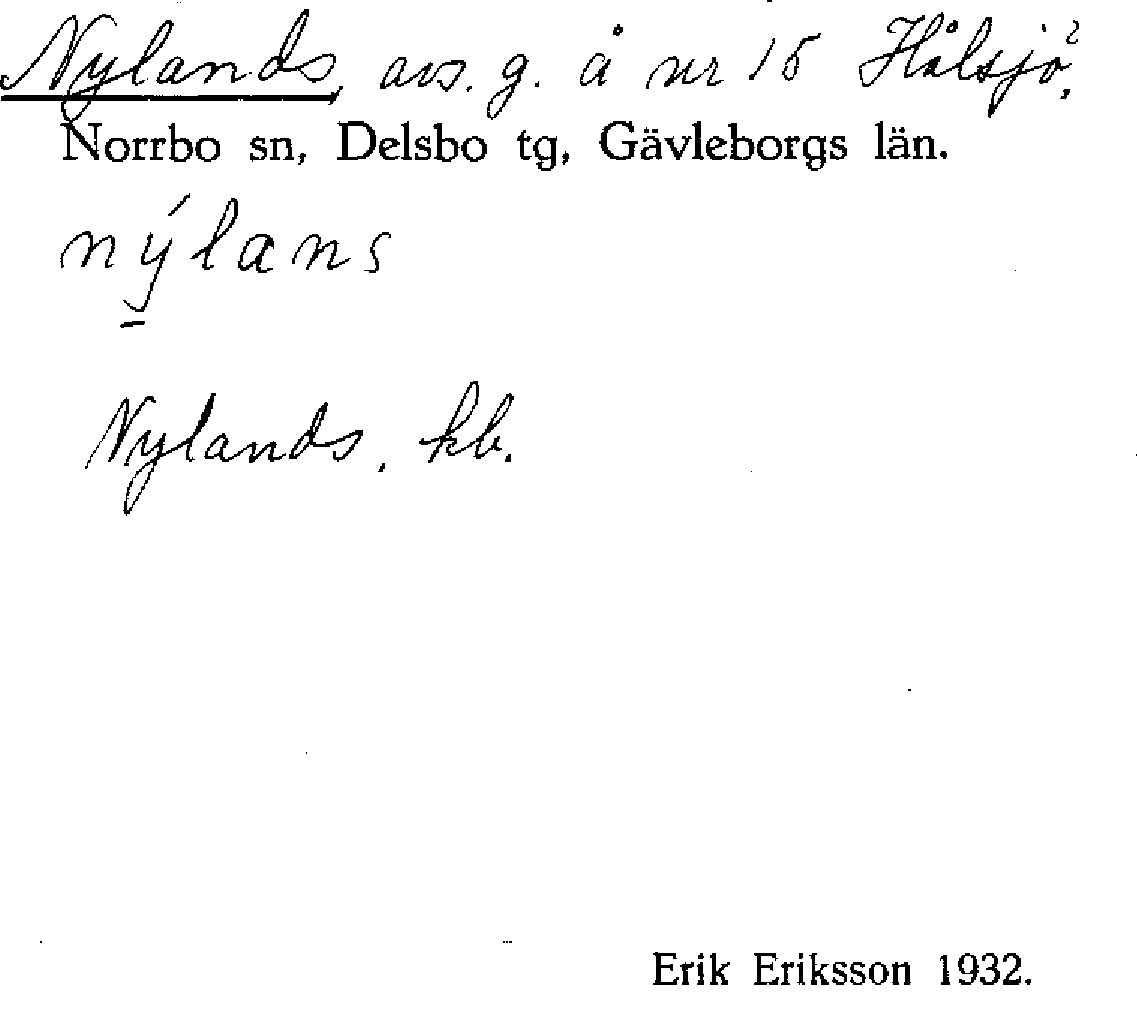 Nylands, avs. g. å nr 15 Hålsjö,²
Norrbo sn, Delsbo tg, Gävleborgs län.
nýlans
Nylands. kb.
Erik Eriksson 1932.